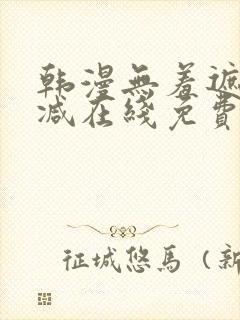 韩漫無羞遮
减在綫免費
征城悠馬（新